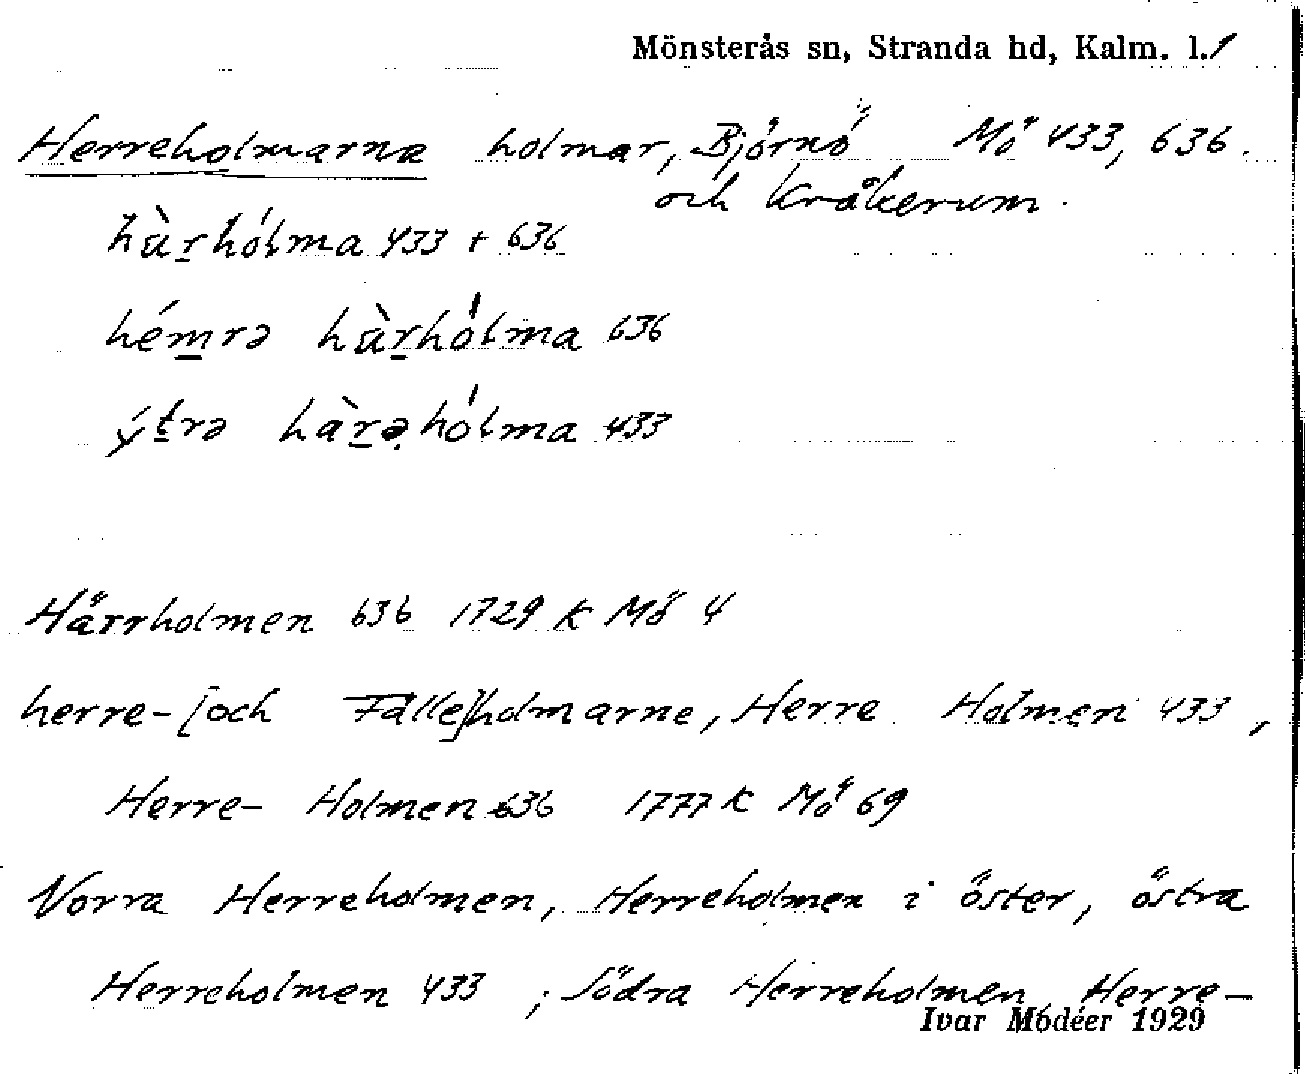 Mönsterås sn, Stranda hd, Kalm. l. 1
Herreholmarna holmar, Björnö Mö 433, 636.
och Kråkerum.
hàr̲hólma 433 + 636
hém̲rə hàr̲hólma 636
ýt̲rə hàr̲əhólma 433
Härrholmen 636 1729 K Mö 4
herre-[och Fälle]holmarne, Herre Holmen 433,
Herre- Holmen 636 1777 K Mö 69
Norra Herreholmen, Herreholmen i öster, östra
Herreholmen 433; Södra Herreholmen, Herre-
Ivar Modéer 1929